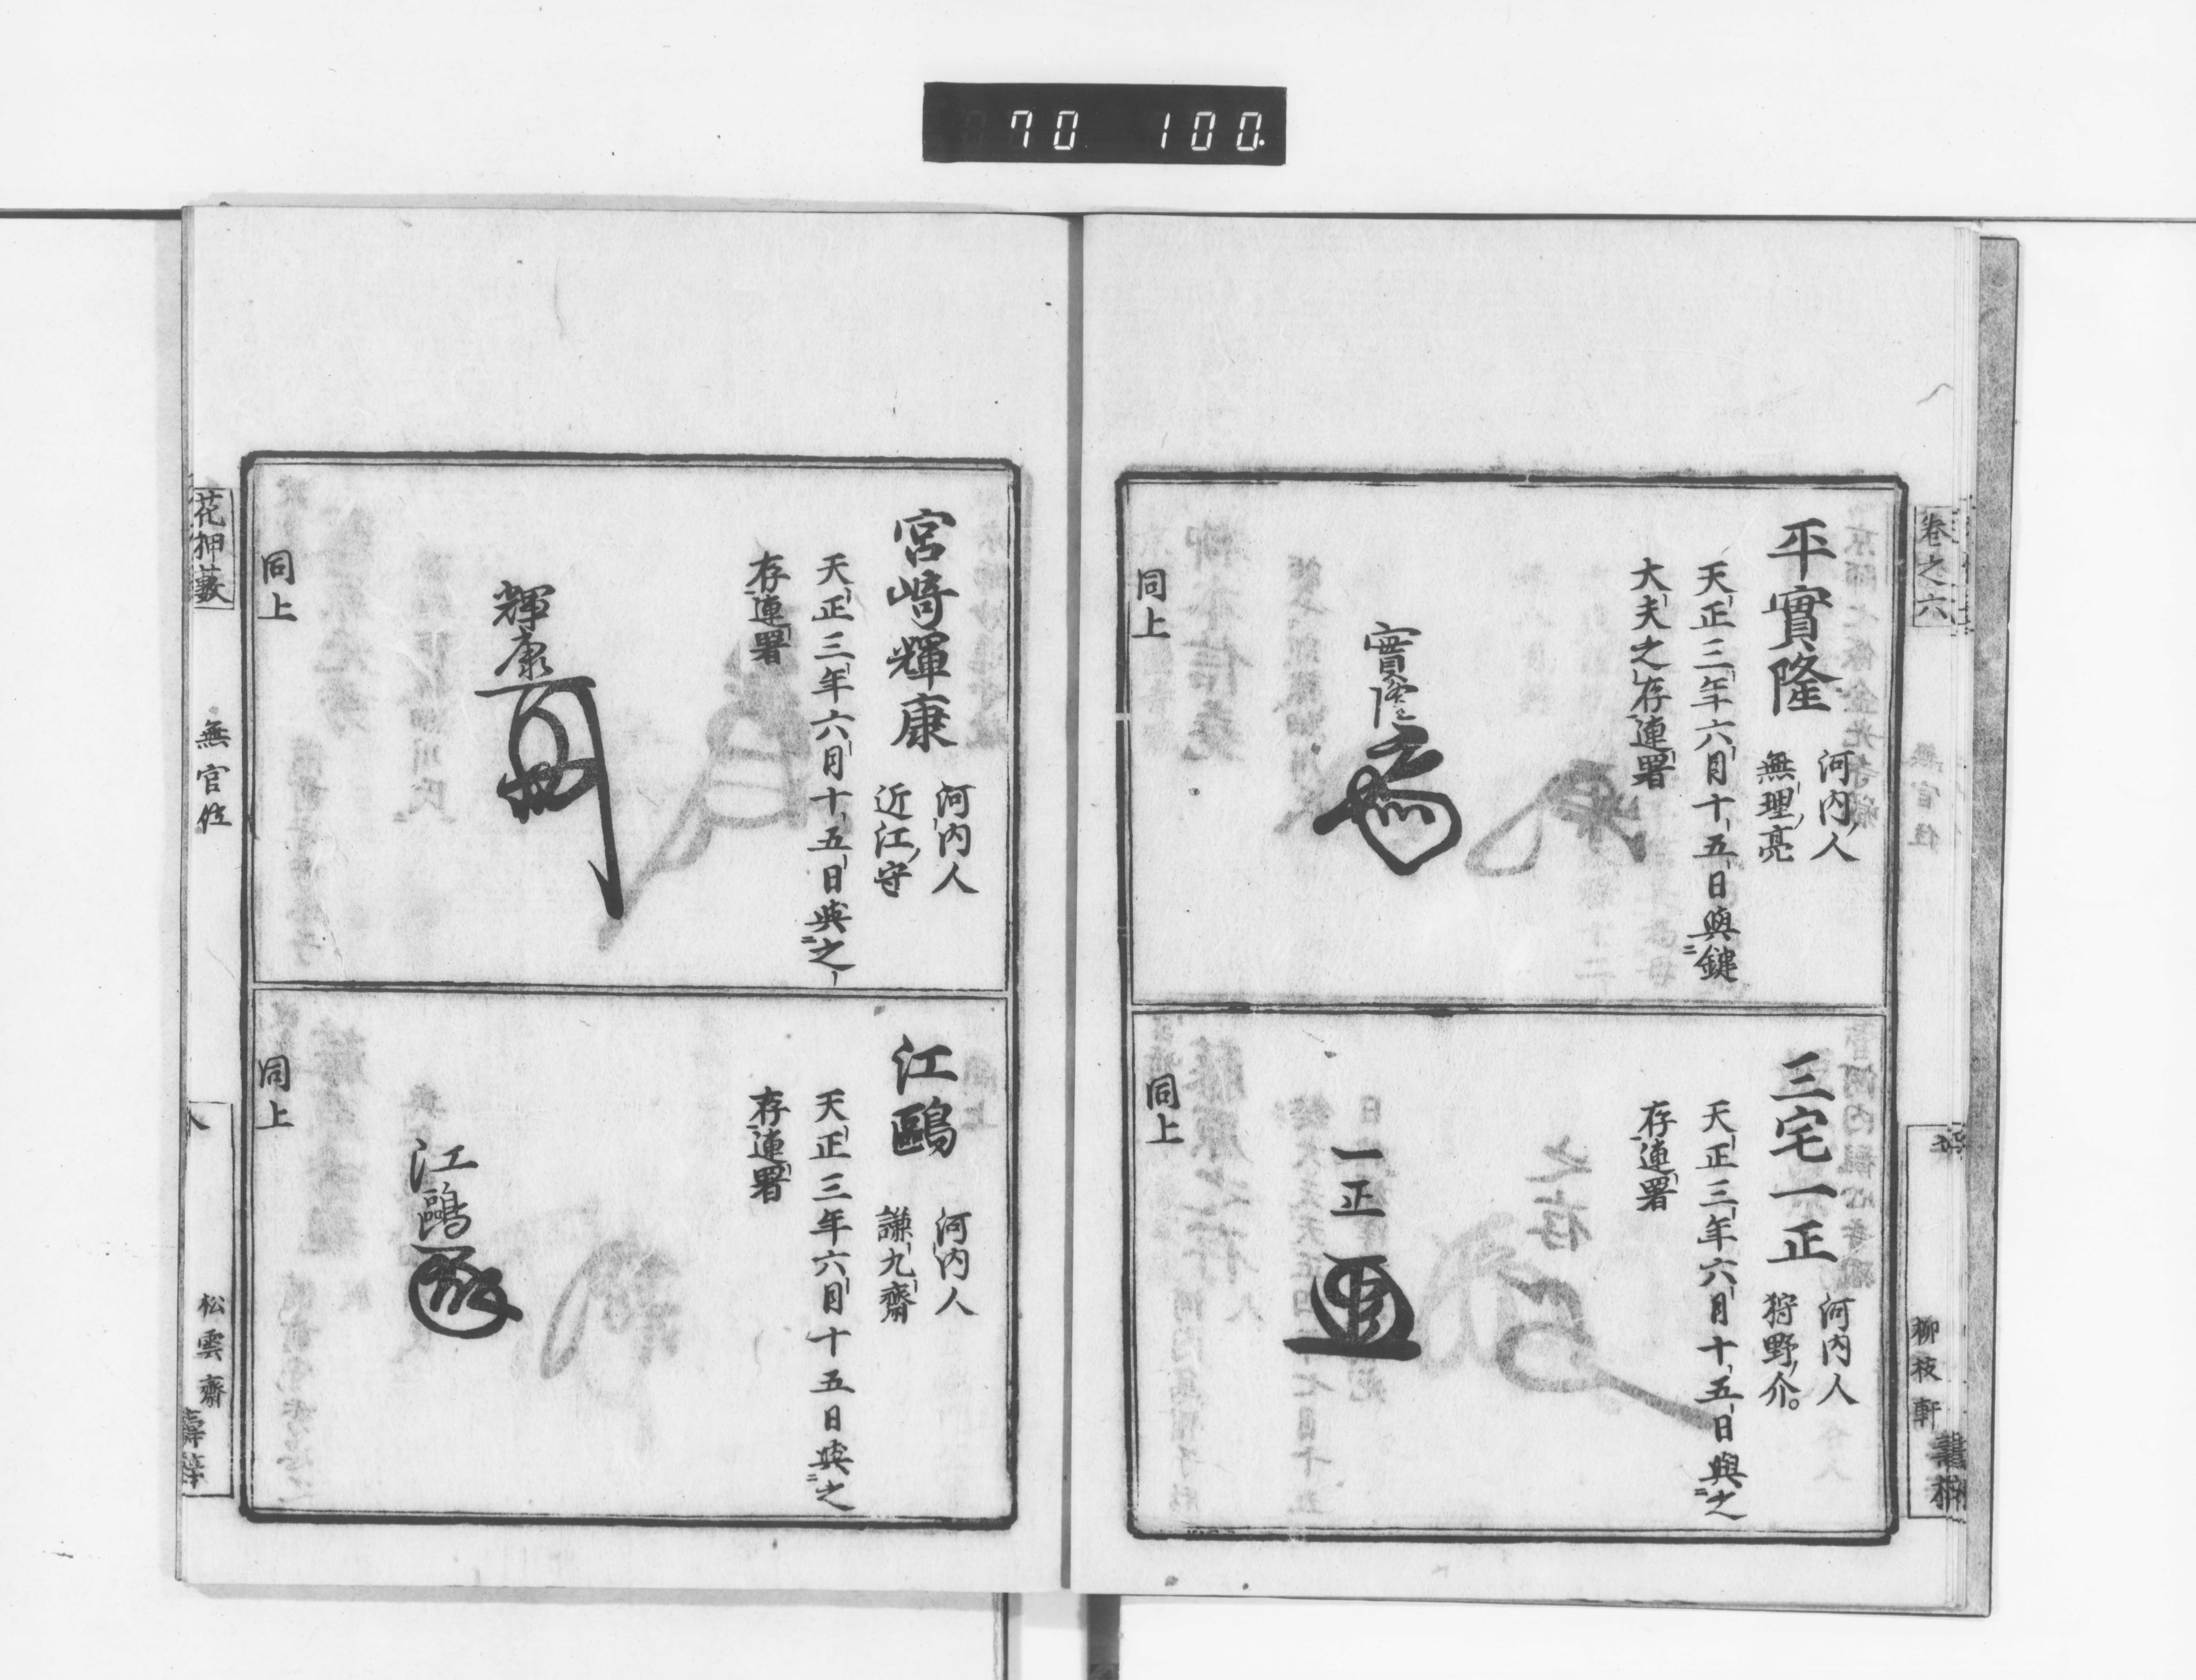 70 100
卷之六
無官位
柳枝軒
平實隆
河内人
無理亮
天正三年六月十五日與鍵
大夫之存連署
實隆
同上
三宅一正
河内人
狩野介
天正三年六月十五日與之
存連署
一正
同上
宮﨑輝康
河内人
近江守
天正三年六月十五日與之
存連署
輝康
同上
江鷗
河内人
謙九齋
天正三年六月十五日與之
存連署
江鷗
同上
花押藪
無官位
松雲齋